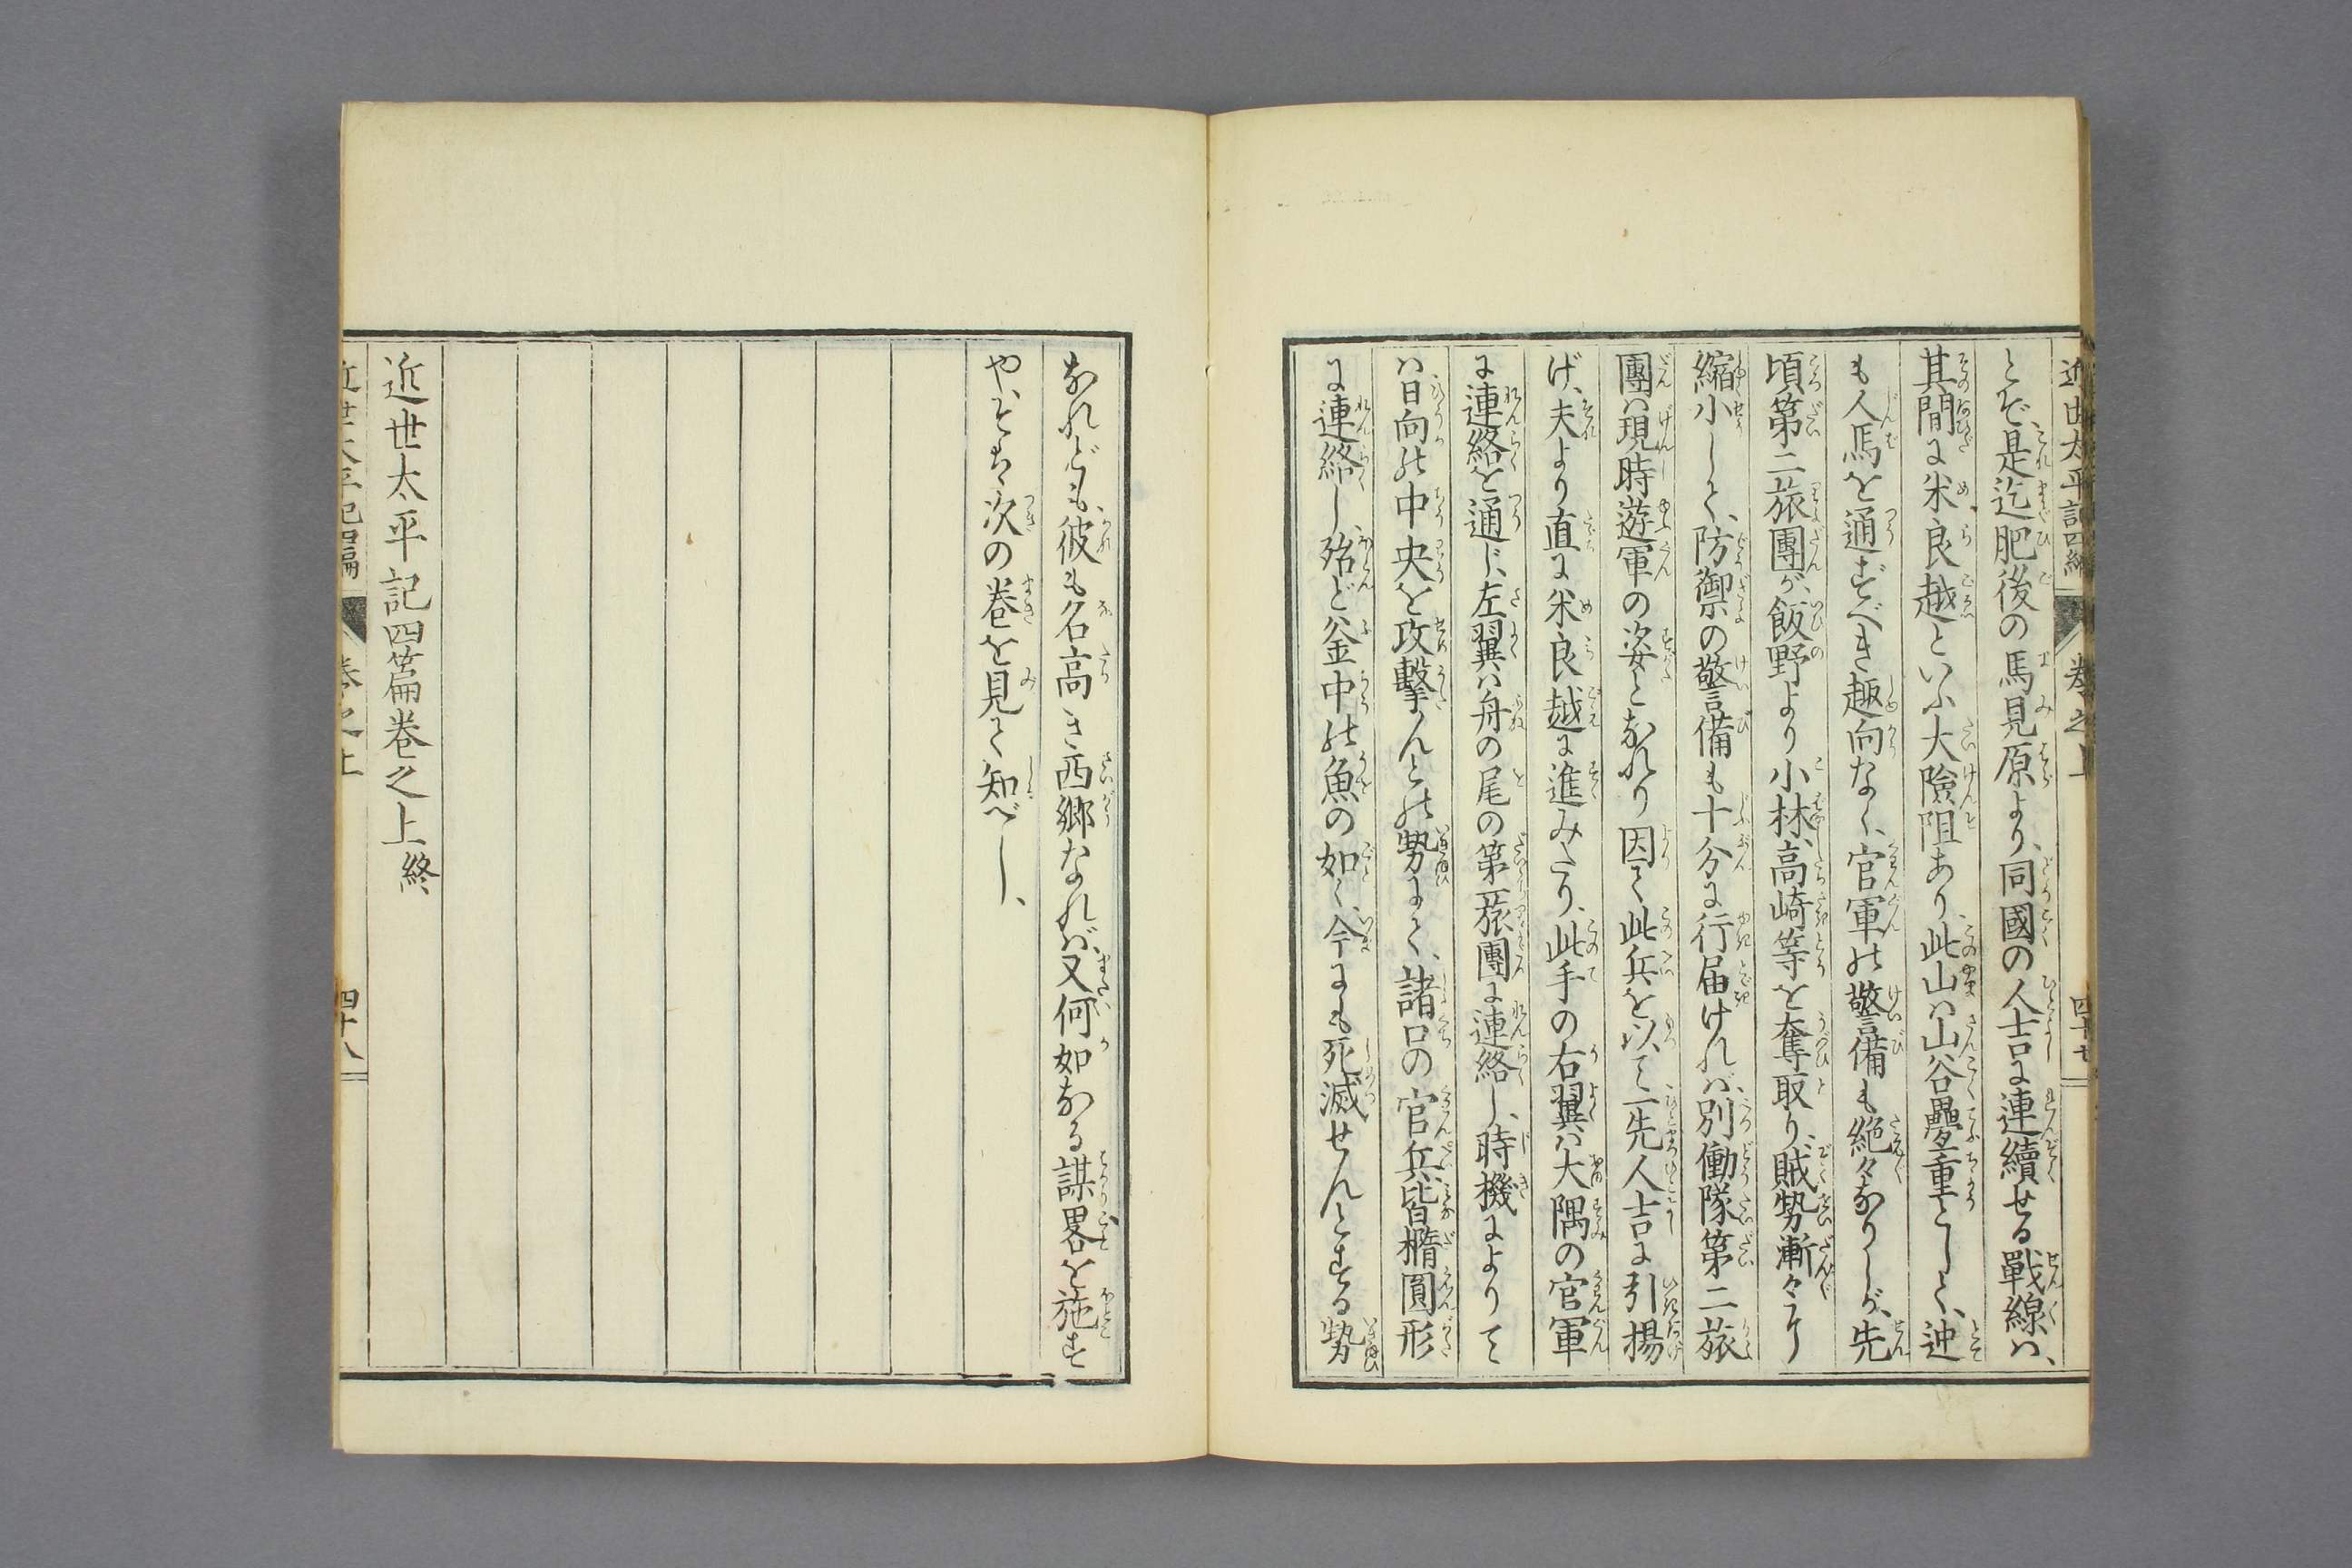 近世太平記四編 巻之上 四十七
とぞ、是迄肥後の馬見原より、同國の人吉に連續せる戰線ハ、
其間に米良越といふ大險阻あり、此山ハ山谷疊重として、迚
も人馬を通ずべき趣向なく、官軍の警備も絶々なりしが、先
頃第二旅團が、飯野より小林、高崎等を奪取り、賊勢漸々に
縮小して、防御の警備も十分に行届けれバ、別働隊第二旅
團ハ現時遊軍の姿となれり因て此兵を以て一先人吉に引揚
げ、夫より直に米良越に進みたり、此手の右翼ハ大隅の官軍
に連絡を通じ、左翼ハ舟の尾の第一旅團に連絡し、時機によりて
ハ日向の中央を攻撃んとの勢にて、諸口の官兵、皆橢圓形
に連絡し、殆ど釜中の魚の如く、今にも死滅せんとする勢
なれども、彼も名高き西郷なれバ、又何如なる謀畧を施す
や、そハ次の巻を見て知べし、
近世太平記四篇巻之上終
近世太平記四編 巻之上 四十八